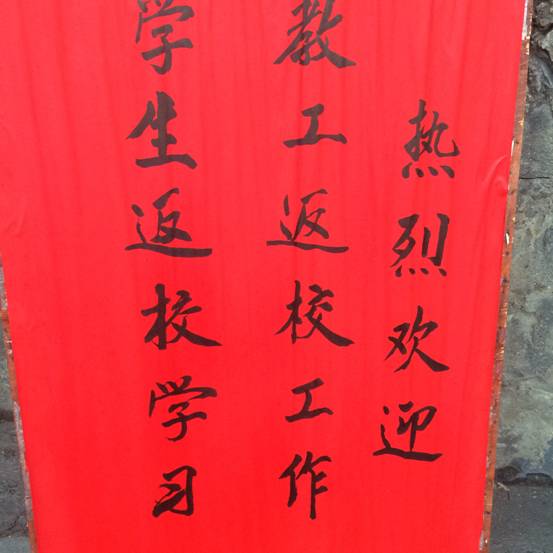 热烈欢迎
教工返校工作
学生返校学习